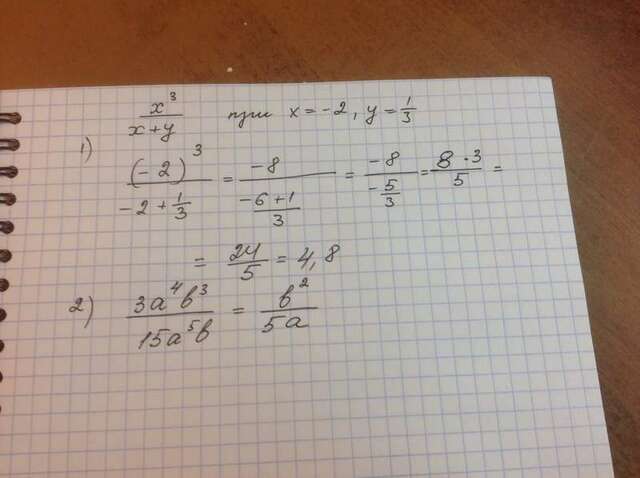 x³/(x+y) при x = -2, y = 1/3
1) (-2)³/(-2 + 1/3) = -8/((-6+1)/3) = -8/(-5/3) = 8·3/5 =
= 24/5 = 4,8
2) 3a⁴b³/15a⁵b = b²/5a